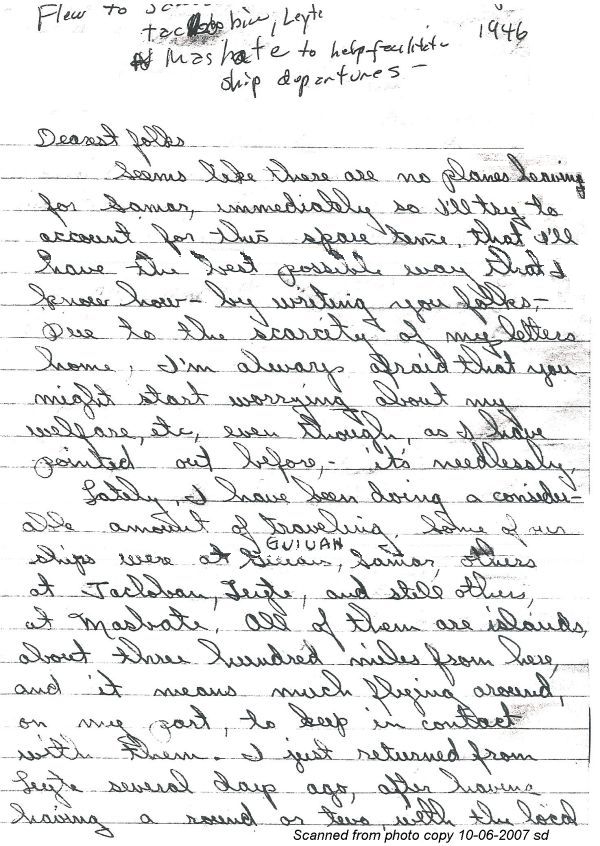 Flew to
Tacloban, Leyte
1946
Masbate to help facilitate
ship departures —
Dearest folks
Seems like there are no planes leaving
for Samar, immediately so I'll try to
account for this spare time, that I'll
have the best possible way that I
know how - by writing you folks, -
Due to the scarcity of my letters
home, I'm always afraid that you
might start worrying about my
welfare, etc, even though, as I have
pointed out before, - it's needlessly.
Lately, I have been doing a consider-
able amount of traveling. Some of our
GUIUAN
ships were at Samar, others
at Tacloban, Leyte, and still others,
at Masbate. All of them are islands,
about three hundred miles from here,
and it means much flying around,
on my part, to keep in contact
with them. I just returned from
Leyte several days ago, after having
having a round or two with the local
Scanned from photo copy 10-06-2007 sd